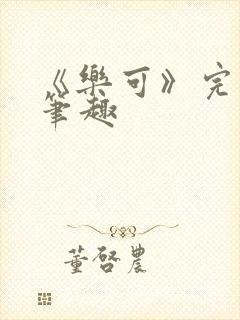 《樂可》完
筆趣
董啓農